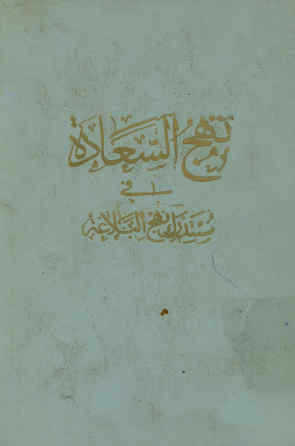 نهج السعادة
في
مستدرك نهج البلاغة